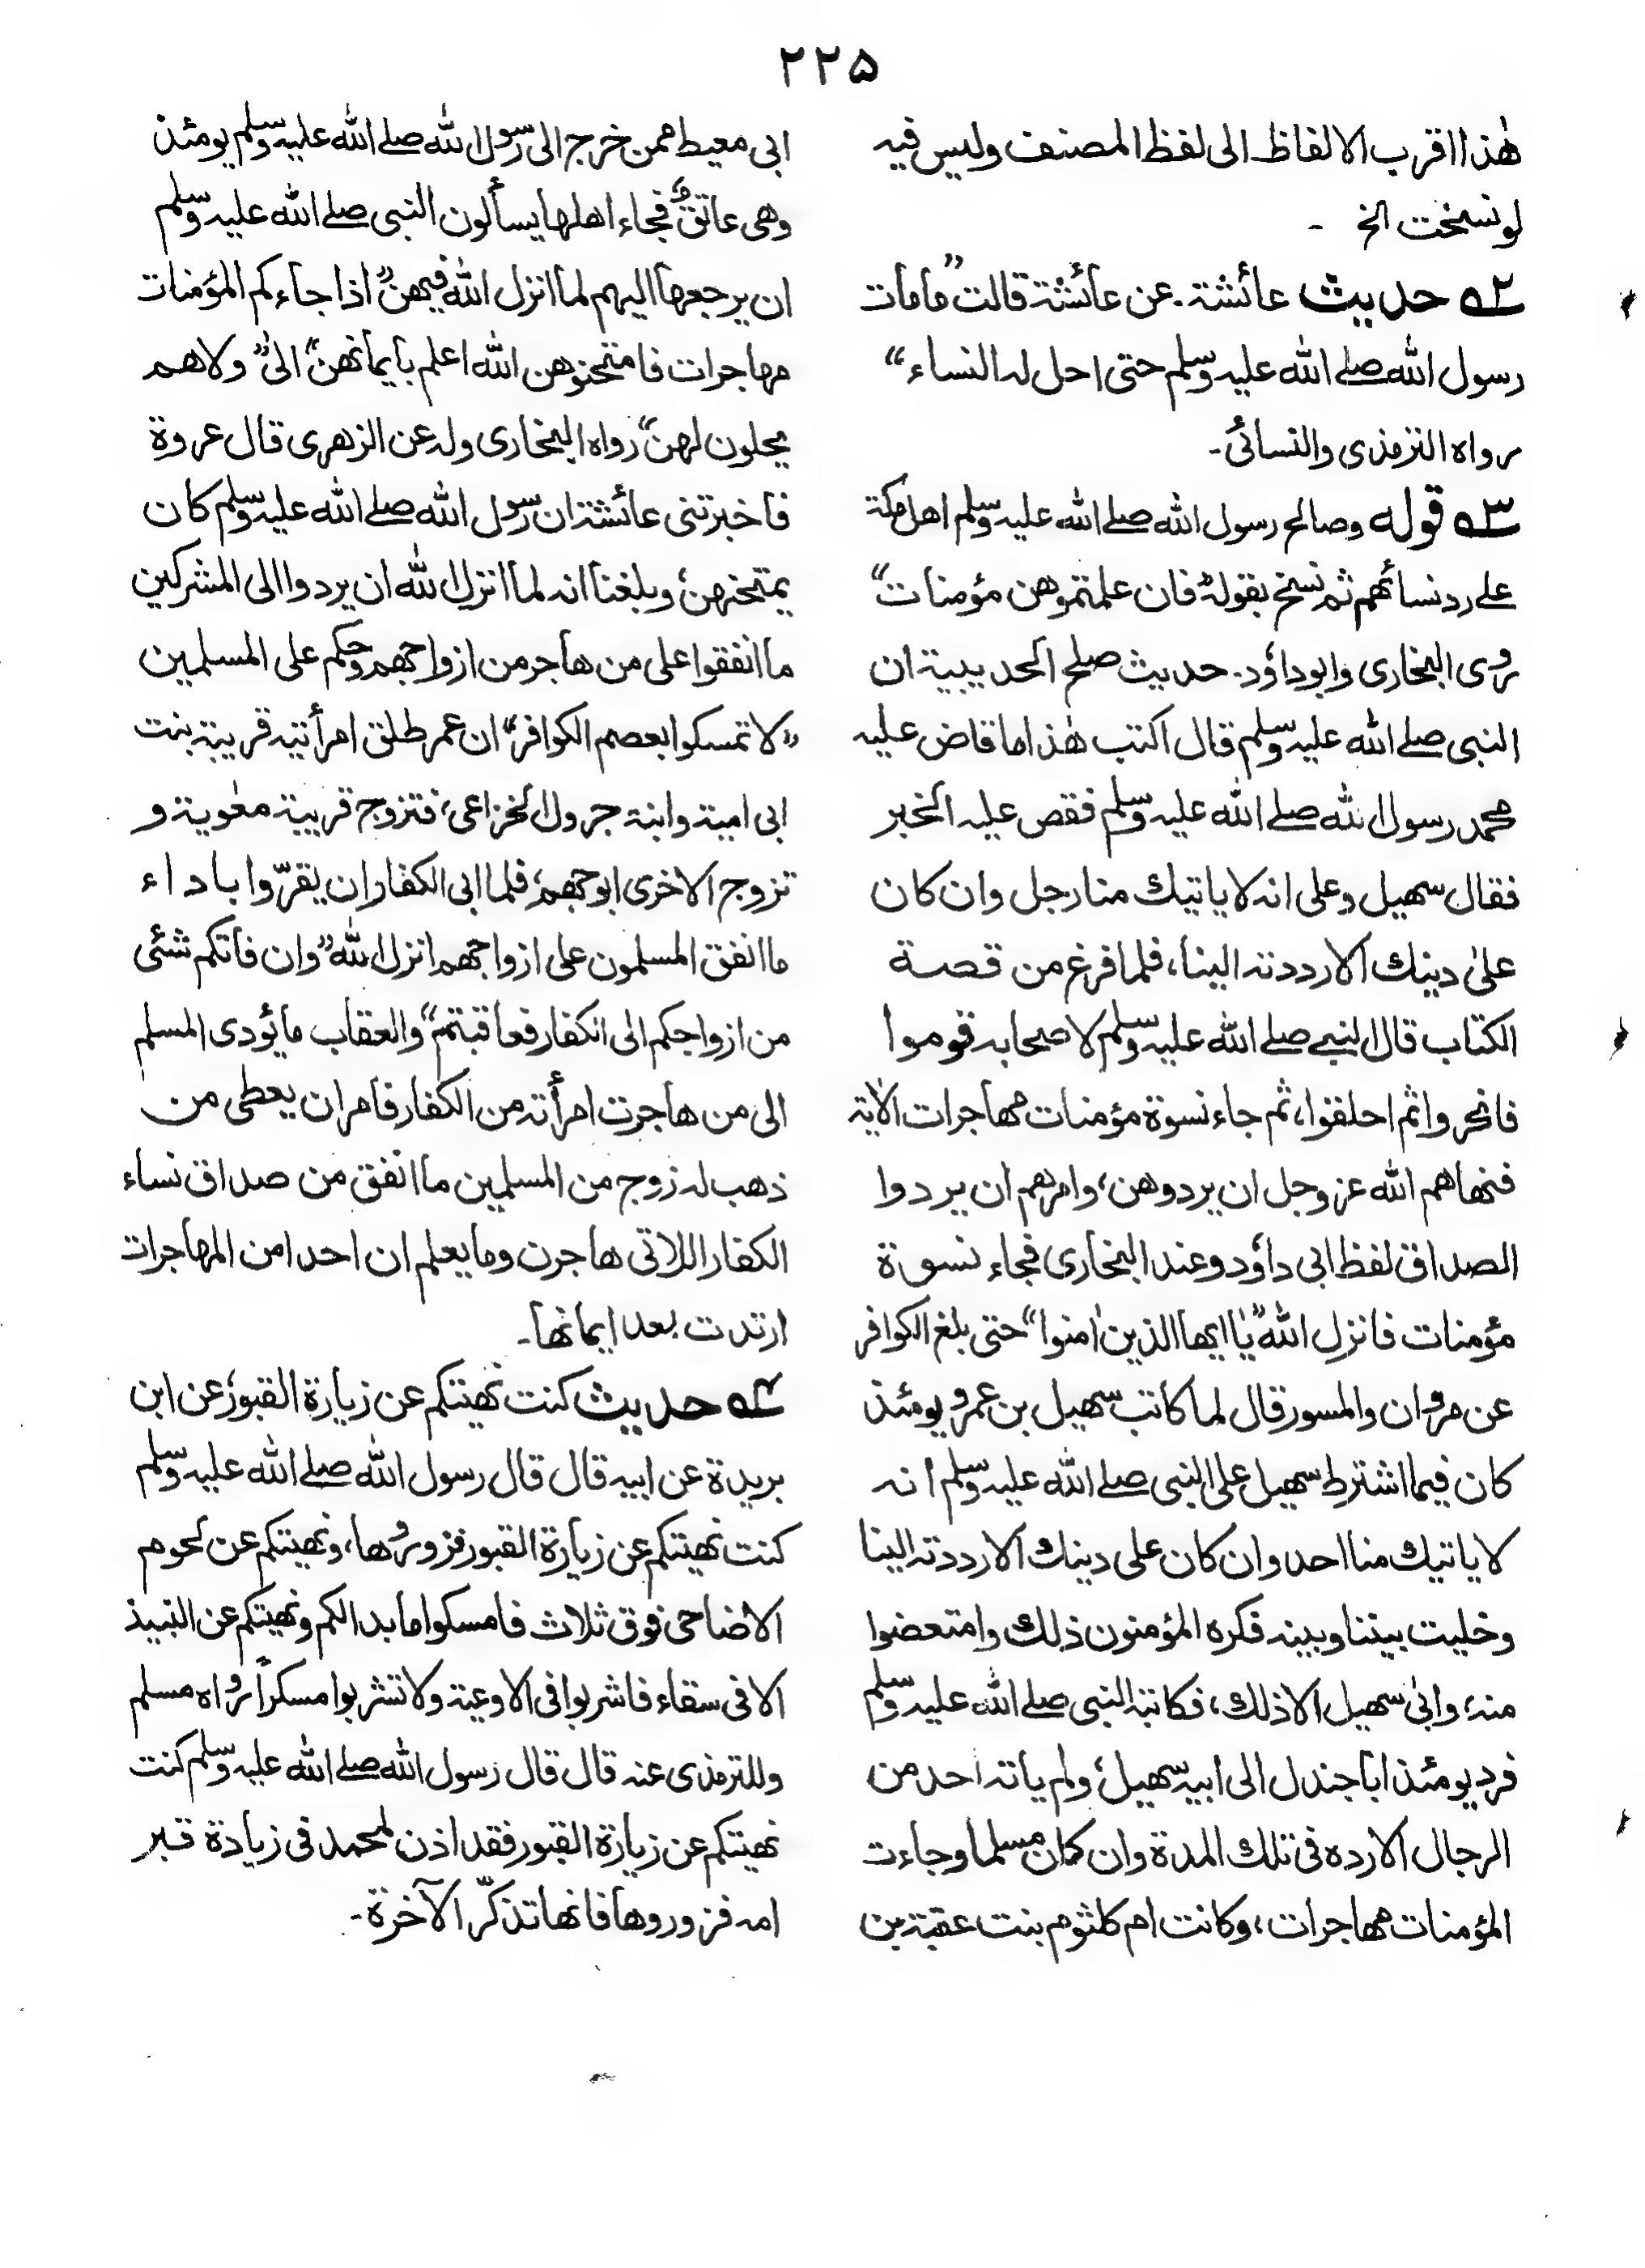 ۲۲۵
هٰذا اقرب الالفاظ الی لفظ المصنف ولیس فیہ
لو نسخت الخ -
۵۲ حدیث عائشۃ. عن عائشۃ قالت "ما مات
رسول اللہ صلے اللہ علیہ وسلم حتی احل لہ النساء"
رواہ الترمذی والنسائی-
۵۳ قولہ وصالح رسول اللہ صلے اللہ علیہ وسلم اھل مکۃ
علے رد نسائھم ثم نسخ بقولہ "فان علمتموھن مؤمنات"
روی البخاری وابوداؤد. حدیث صلح الحدیبیۃ ان
النبی صلے اللہ علیہ وسلم قال اکتب ھٰذا ما قاض علیہ
محمد رسول اللہ صلے اللہ علیہ وسلم فقص علیہ الخبر
فقال سھیل وعلی انہ لا یاتیك منا رجل وان کان
علیٰ دینك الا رددتہ الینا، فلما فرغ من قصۃ
الکتاب قال النبی صلے اللہ علیہ وسلم لاصحابہ قوموا
فانحروا ثم احلقوا، ثم جاء نسوۃ مؤمنات مھاجرات الاٰیۃ
فنھاھم اللہ عز وجل ان یردوھن، وامرھم ان یردوا
الصداق لفظ ابی داؤد وعند البخاری فجاء نسوۃ
مؤمنات فانزل اللہ "یٰا ایھا الذین اٰمنوا" حتی بلغ الکوافر
عن مروان والمسور قال لما کاتب سھیل بن عمرو یومئذ
کان فیما اشترط سھیل علی النبی صلے اللہ علیہ وسلم أنہ
لا یاتیك منا احد وان کان علی دینك الا رددتہ الینا
وخلیت بیننا وبینہ فکرہ المؤمنون ذٰلك وامتعضوا
منہ، وابیٰ سھیل الا ذلك، فکاتبہ النبی صلے اللہ علیہ وسلم
فرد یومئذ ابا جندل الی ابیہ سھیل، ولم یاتہ احد من
الرجال الا ردہ فی تلك المدۃ وان کان مسلما وجاءت
المؤمنات مھاجرات، وکانت ام کلثوم بنت عقبۃ بن
ابی معیط ممن خرج الی رسول اللہ صلے اللہ علیہ وسلم یومئذ
وھی عاتق، فجاء اھلھا یسألون النبی صلے اللہ علیہ وسلم
ان یرجعھا الیھم لما انزل اللہ فیھن "اذا جاءکم المؤمنات
مھاجرات فامتحنوھن اللہ اعلم بایمانھن" الیٰ "ولا ھم
یحلون لھن" رواہ البخاری ولہ عن الزھری قال عروۃ
فاخبرتنی عائشۃ ان رسول اللہ صلے اللہ علیہ وسلم کان
یمتحنھن، وبلغنا انہ لما انزل اللہ ان یردوا الی المشرکین
ما انفقوا علی من ھاجر من ازواجھم وحکم علی المسلمین
"لا تمسکوا بعصم الکوافر" ان عمر طلق امرأتیہ قریبۃ بنت
ابی امیۃ وابنۃ جرول الخزاعی، فتزوج قریبۃ معٰویۃ و
تزوج الاخری ابوجھم، فلما ابی الکفار ان یقرّوا باداء
ما انفق المسلمون علی ازواجھم انزل اللہ "وان فاتکم شئی
من ازواجکم الی الکفار فعاقبتم" والعقاب ما یؤدی المسلم
الی من ھاجرت امرأتہ من الکفار فامر ان یعطی من
ذھب لہ زوج من المسلمین ما انفق من صداق نساء
الکفار اللاتی ھاجرن وما یعلم ان احدا من المھاجرات
ارتدت بعد ایمانھا-
۵۴ حدیث کنت نھیتکم عن زیارۃ القبور، عن ابن
بریدۃ عن ابیہ قال قال رسول اللہ صلے اللہ علیہ وسلم
کنت نھیتکم عن زیارۃ القبور فزوروھا، ونھیتکم عن لحوم
الاضاحی فوق ثلاث فامسکوا ما بدا لکم ونھیتکم عن النبیذ
الا فی سقاء فاشربوا فی الاوعیۃ ولا تشربوا مسکراً رواہ مسلم
وللترمذی عنہ قال قال رسول اللہ صلے اللہ علیہ وسلم کنت
نھیتکم عن زیارۃ القبور فقد اذن لمحمد فی زیادۃ قبر
امہ فزوروھا فانھا تذکّر الآخرۃ-